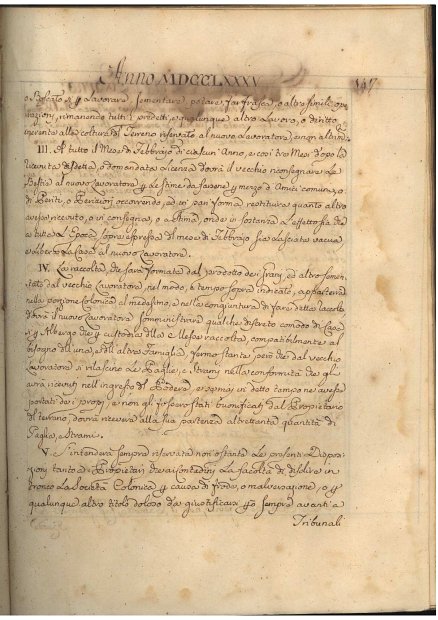 Anno MDCCLXXXV
147
o Boscato, e p lavorare, sementare, potare, far frasca, o altre simili ope
razioni, rimanendo tutti i predetti, e qualunque altro lavoro, o diritto
inerente alla coltura di Terreno riservato al nuovo Lavoratore, e non altrim.
III. A tutto il Mese di Febbrajo di ciascun Anno, e così tre Mesi dopo la
ricevuta disdetta, o domandata Licenza dovrà il vecchio riconsegnare le
Bestie al nuovo Lavoratore, p le stime da farsene p mezzo d'Amici comuni, o
di Periti, o Periziori occorrendo, ed in pari forma restituire quanto altro
avesse ricevuto, o in consegna, o a stima, onde in sostanza l'effetto sia che
a tutta l'Epoca sopra espressa del mese di Febbrajo sia lasciata vacua
e libera la Casa al nuovo Lavoratore.
IV. La raccolta, che sarà formata dal prodotto dei Grani, ed altro semen
tato dal vecchio Lavoratore, nel modo, e tempo sopra indicato, apparterrà
nella porzione Colonica al medesimo, e nella congiuntura di fare detta raccolta
dovrà il nuovo Lavoratore somministrare qualche discreto comodo di Case
p Albergo di lei, e custodia della Messe raccolta, compatibilmente al
bisogno dell'una, e dell'altra Famiglia, fermo stante però che dal vecchio
Lavoratore si rilascino le Paglie, e Strami nella conformità che gli
avrà ricevuti nell'ingresso del Podere, e se mai in detto tempo ne avesse
portati dei proprj, e non gli fossero stati buonificati dal Proprietario
del terreno, dovrà ricevere alla sua partenza altrettanta quantità di
Paglia, e Strami.
V. S'intenderà sempre riservata non ostante le presenti Dispo
sizioni tanto ai Proprietarj che ai Contadini la facoltà di disdire in
tronco la Società Colonica p causa di frode, o malversazione, o p
qualunque altro titolo doloso da giustificarsi però sempre avanti a
Tribunali